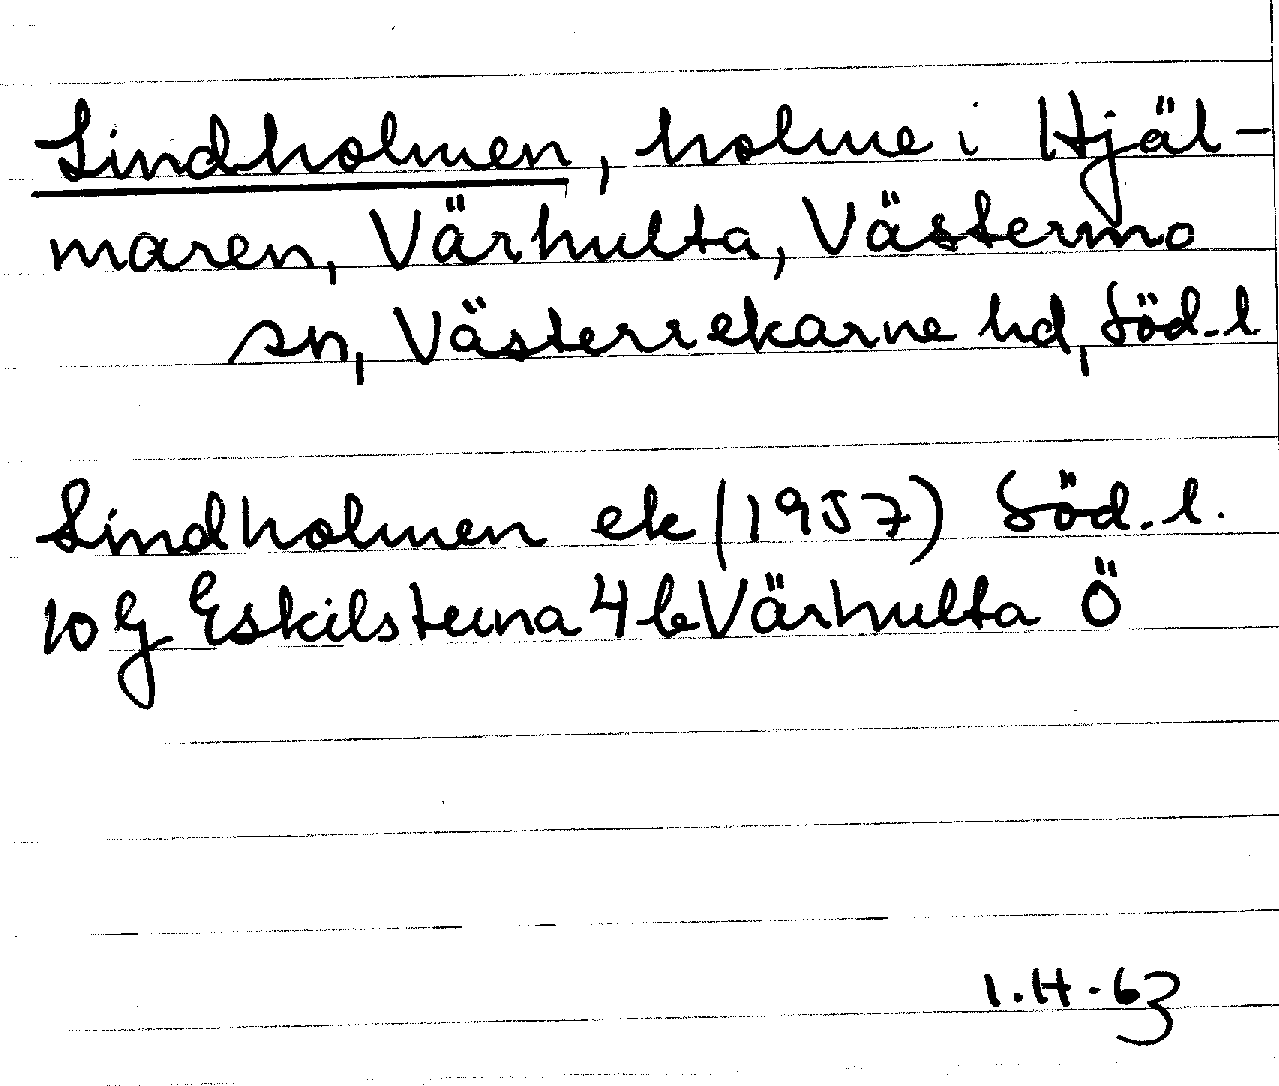 Lindholmen, holme i Hjäl-
maren, Värhulta, Västermo
sn, Västerrekarne hd, Söd.l
Lindholmen ek (1957) Söd.l.
10G Eskilstuna 4b Värhulta Ö
I.H-63